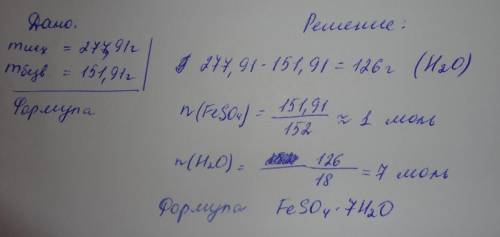 Дано.
mисх = 277,91г
mбезв = 151,91г
Формула
Решение:
277,91 - 151,91 = 126 г (H2O)
n(FeSO4) = 151,91 / 152 ≈ 1 моль
n(H2O) = 126 / 18 = 7 моль
Формула FeSO4 · 7H2O